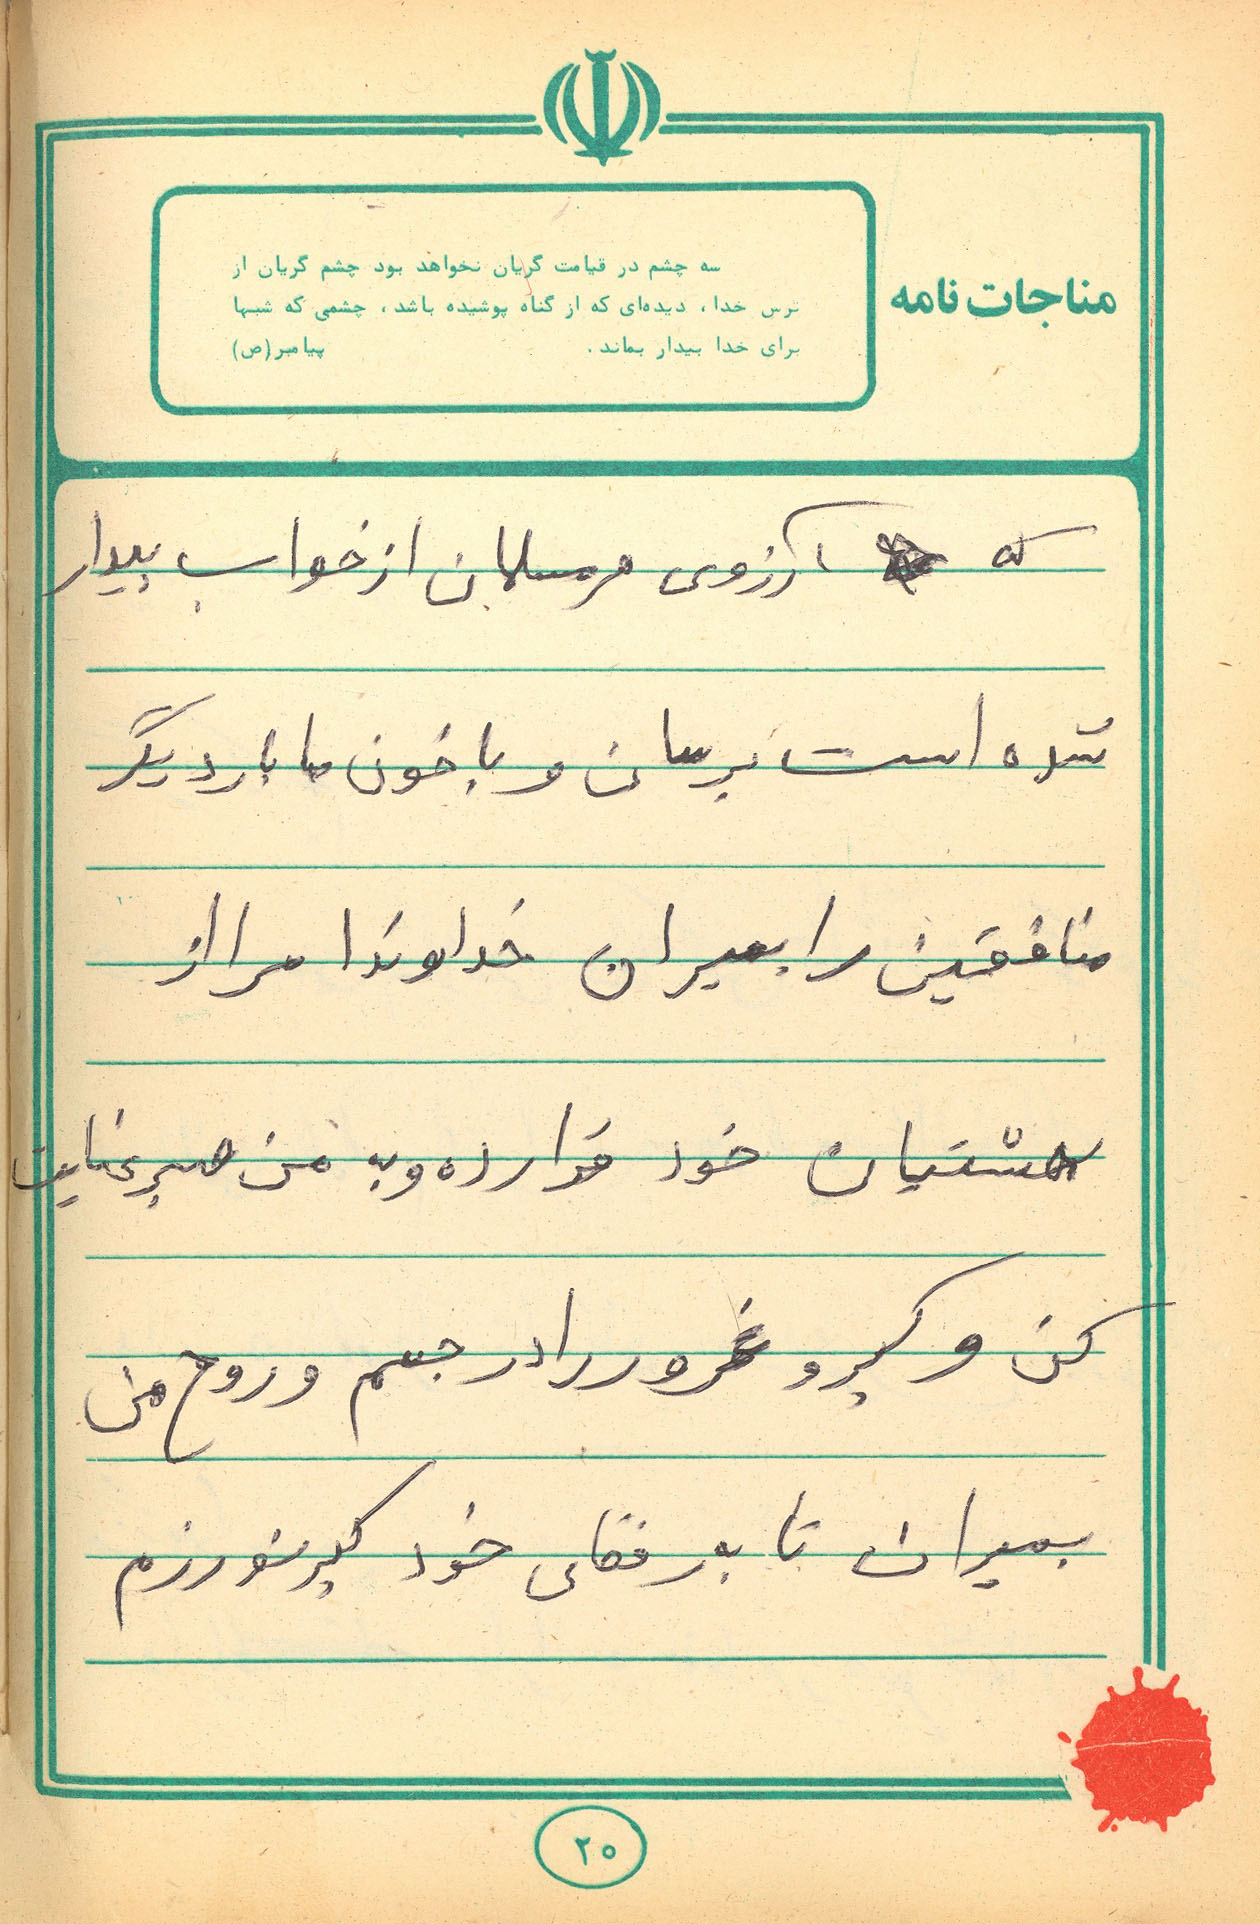 مناجات نامه
سه چشم در قیامت گریان نخواهد بود چشم گریان از
ترس خدا، دیده‌ای که از گناه پوشیده باشد، چشمی که شبها
برای خدا بیدار بماند. پیامبر(ص)
که آرزوی هر مسلمان از خواب بیدار
شده است برسان و با خون ما بار دیگر
منافقین را بمیران خداوندا مرا از
بهشتیان خود قرار ده و به من صبر عنایت
کن و کبر و غرور را در جسم و روح من
بمیران تا به رفقای خود کبر نورزم
۲۰